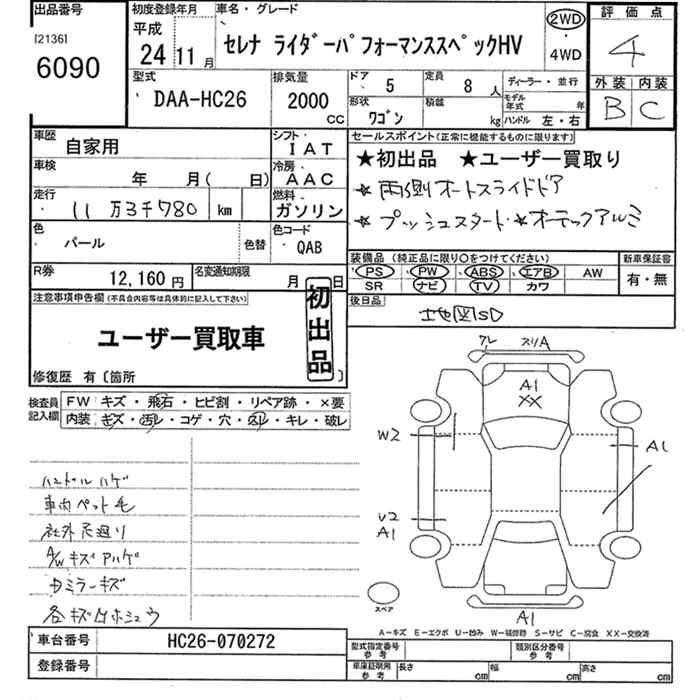 出品番号
[2136]
6090
初度登録年月
平成
24 11 月
車名・グレード
セレナ ライダーパフォーマンススペックHV
2WD
・
4WD
評価点
4
外装 内装
B C
型式
DAA-HC26
排気量
2000
CC
ドア 5
定員 8 人
ディーラー・並行
形状 ワゴン
積載 kg
モデル年式 年
ハンドル 左・右
車歴 自家用
シフト IAT
セールスポイント(正常に機能するものに限ります)
★初出品 ★ユーザー買取り
★両側オートスライドドア
★プッシュスタート★オーテックアルミ
車検 年 月( 日)
冷房 AAC
走行 11 万3千780 km
燃料 ガソリン
色 パール
色替
色コード QAB
装備品(純正品に限り○をつけてください)
PS PW ABS エアB AW
SR ナビ TV カワ
新車保証書
有・無
R券 12,160円
名変通知期限 月 日
後日品
地図SD
注意事項申告欄(不具合内容等は具体的に記入して下さい)
初出品
ユーザー買取車
修復歴 有〔箇所 〕
検査員記入欄
FW キズ・飛石・ヒビ割・リペア跡・×要
内装 キズ・汚レ・コゲ・穴・凹レ・キレ・破レ
ハンドルハゲ
車内ペット毛
社外尺廻り
A/Wキズアハゲ
Dミラーキズ
各キズ凹ホシュウ
グレ スリA
A1
XX
W2
A1
U2
A1
スペア
A1
A-キズ E-エクボ U-凹み W-補修跡 S-サビ C-腐食 XX-交換済
車台番号 HC26-070272
登録番号
型式指定番号 参考
類別区分番号 参考
車庫証明用 参考
長さ cm
幅 cm
高さ cm